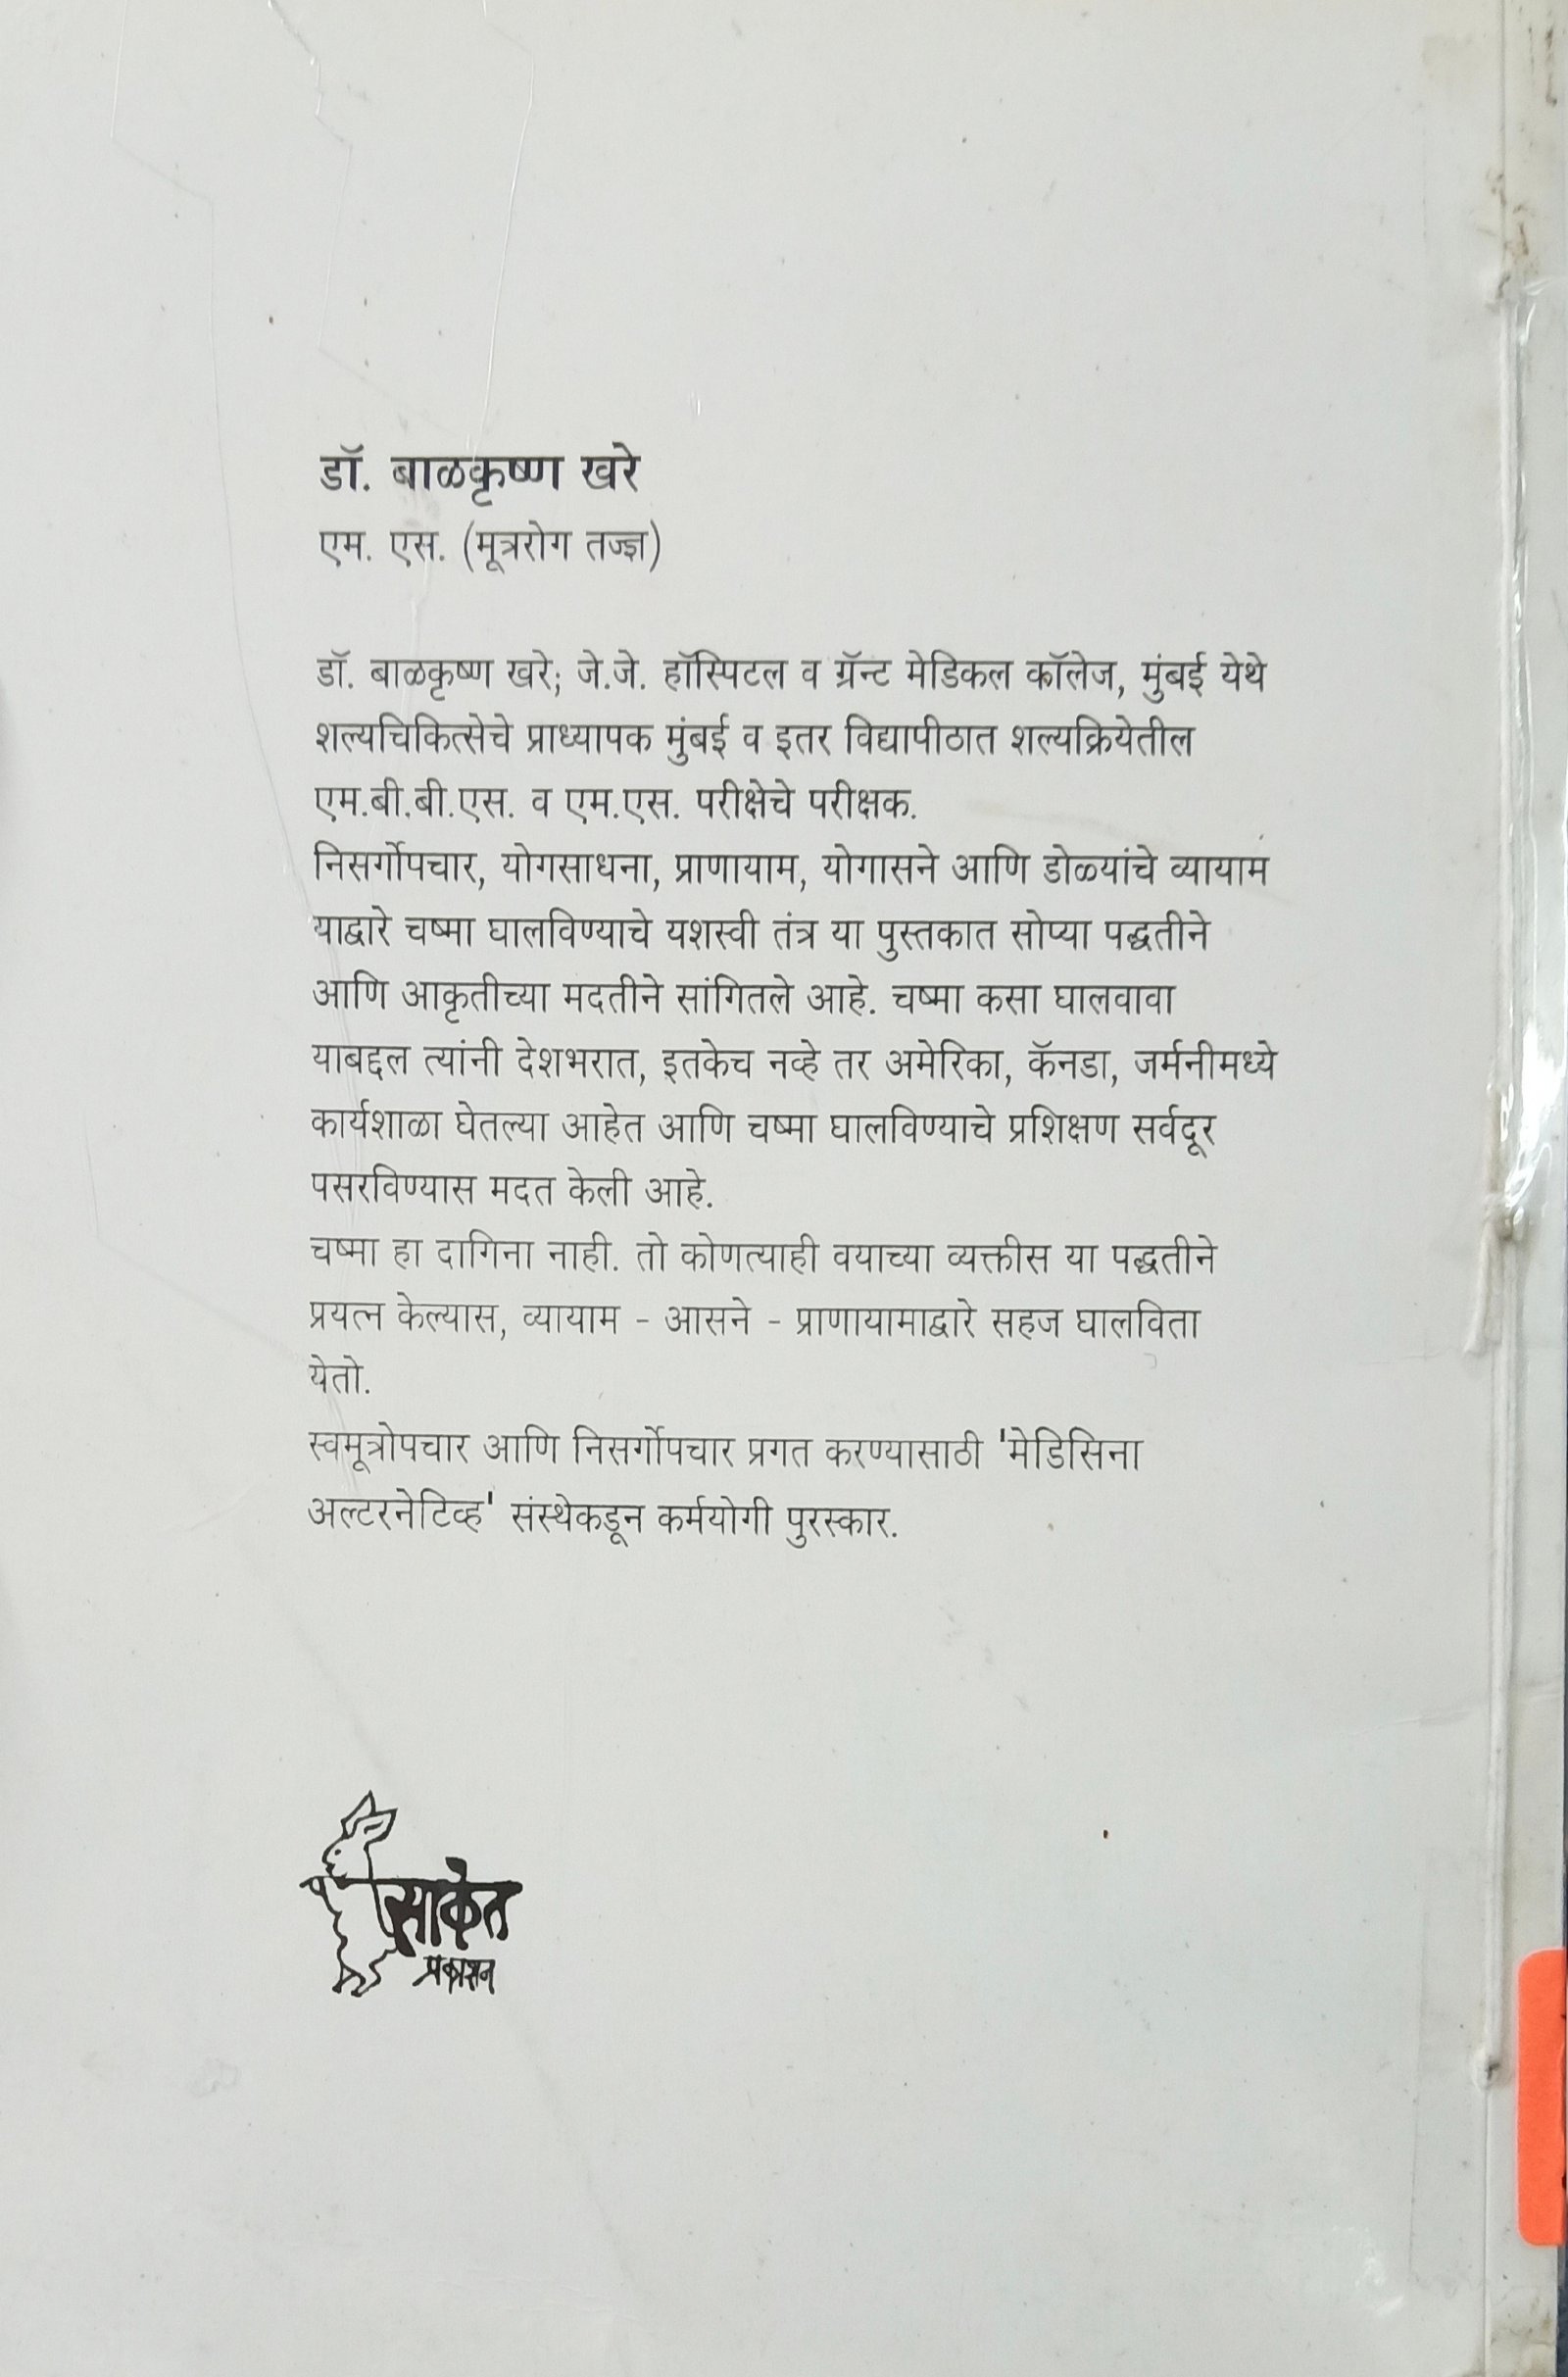 डॉ. बाळकृष्ण खरे
एम. एस. (मूत्ररोग तज्ज्ञ)
डॉ. बाळकृष्ण खरे; जे.जे. हॉस्पिटल व ग्रॅन्ट मेडिकल कॉलेज, मुंबई येथे
शल्यचिकित्सेचे प्राध्यापक मुंबई व इतर विद्यापीठात शल्यक्रियेतील
एम.बी.बी.एस. व एम.एस. परीक्षेचे परीक्षक.
निसर्गोपचार, योगसाधना, प्राणायाम, योगासने आणि डोळ्यांचे व्यायाम
याद्वारे चष्मा घालविण्याचे यशस्वी तंत्र या पुस्तकात सोप्या पद्धतीने
आणि आकृतीच्या मदतीने सांगितले आहे. चष्मा कसा घालवावा
याबद्दल त्यांनी देशभरात, इतकेच नव्हे तर अमेरिका, कॅनडा, जर्मनीमध्ये
कार्यशाळा घेतल्या आहेत आणि चष्मा घालविण्याचे प्रशिक्षण सर्वदूर
पसरविण्यास मदत केली आहे.
चष्मा हा दागिना नाही. तो कोणत्याही वयाच्या व्यक्तीस या पद्धतीने
प्रयत्न केल्यास, व्यायाम - आसने - प्राणायामाद्वारे सहज घालविता
येतो.
स्वमूत्रोपचार आणि निसर्गोपचार प्रगत करण्यासाठी 'मेडिसिना
अल्टरनेटिव्ह' संस्थेकडून कर्मयोगी पुरस्कार.
साकेत
प्रकाशन